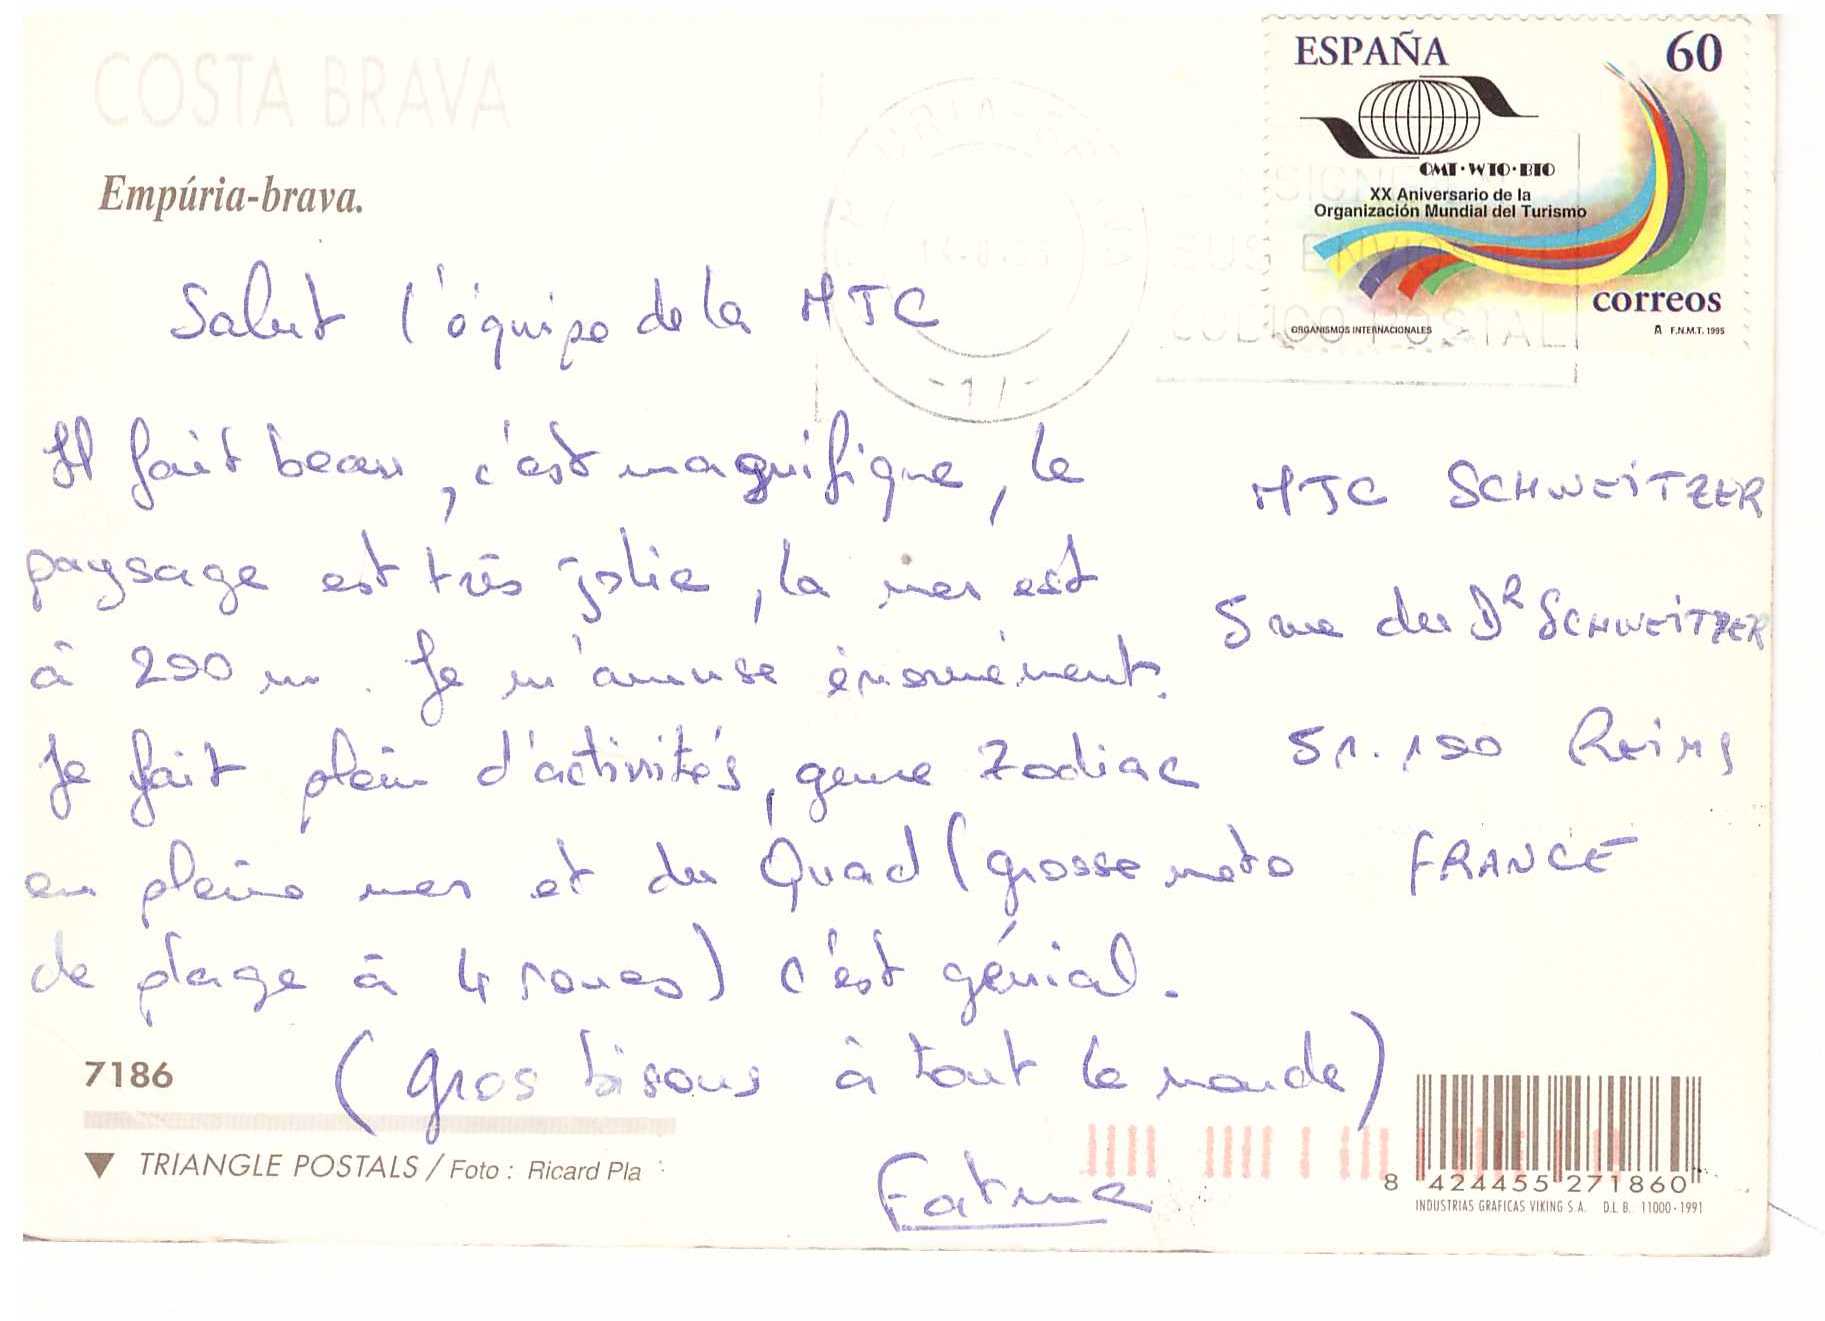 COSTA BRAVA
Empúria-brava.
ESPAÑA 60
OMT·WTO·BTO
XX Aniversario de la
Organización Mundial del Turismo
correos
ORGANISMOS INTERNACIONALES
F.N.M.T. 1995
CODIGO POSTAL
Salut l'équipe de la MJC
Il fait beau, c'est magnifique, le
paysage est très jolie, la mer est
à 200 m. Je m'amuse énormément.
Je fait plein d'activités, genre Zodiac
en pleine mer et du Quad (grosse moto
de plage à 4 roues) c'est génial.
(Gros bisous à tout le monde)
Fatma
MJC SCHWEITZER
5 rue du DR SCHWEITZER
51.100 Reims
FRANCE
7186
▼ TRIANGLE POSTALS / Foto : Ricard Pla
8 424455 271860
INDUSTRIAS GRAFICAS VIKING S.A. D.L. B. 11000-1991